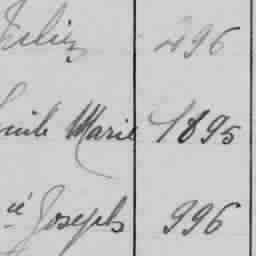 Félix 496
Emile Marie 1895
Joseph 996